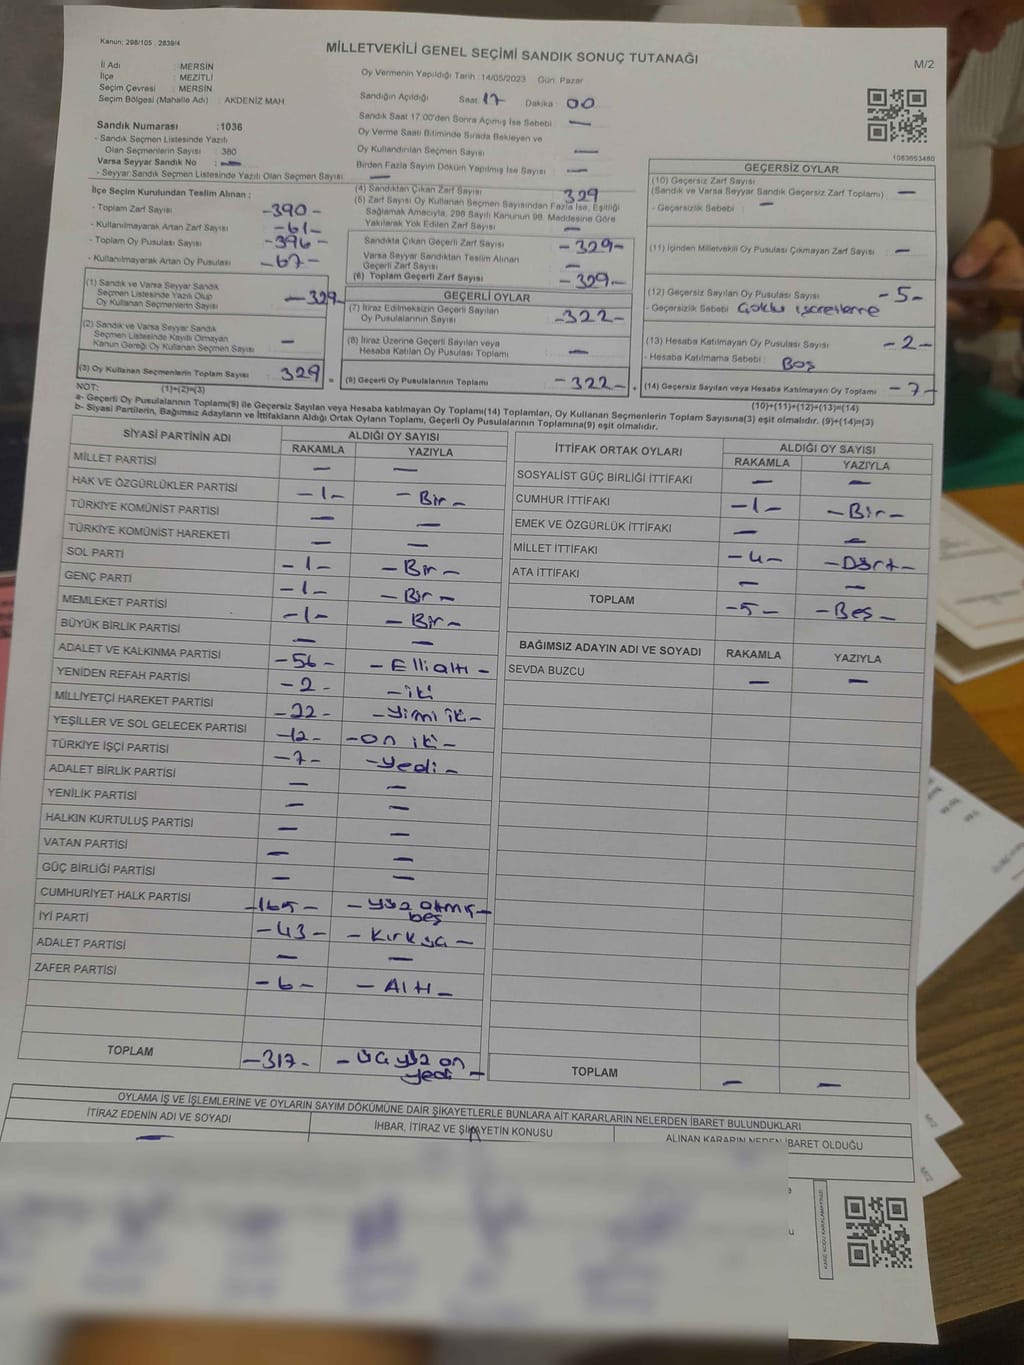 Kanun: 298/105 , 2839/4
MİLLETVEKİLİ GENEL SEÇİMİ SANDIK SONUÇ TUTANAĞI
M/2
İl Adı : MERSİN
İlçe : MEZİTLİ
Seçim Çevresi : MERSİN
Seçim Bölgesi (Mahalle Adı) : AKDENİZ MAH
Oy Vermenin Yapıldığı Tarih : 14/05/2023 Gün: Pazar
Sandığın Açıldığı Saat : 17 Dakika : 00
Sandık Saat 17:00'den Sonra Açılmış İse Sebebi : —
Oy Verme Saati Bitiminde Sırada Bekleyen ve
Oy Kullandırılan Seçmen Sayısı : —
Birden Fazla Sayım Döküm Yapılmış İse Sayısı : —
Sandık Numarası : 1036
- Sandık Seçmen Listesinde Yazılı
Olan Seçmenlerin Sayısı : 380
Varsa Seyyar Sandık No : —
- Seyyar Sandık Seçmen Listesinde Yazılı Olan Seçmen Sayısı : —
1083653480
İlçe Seçim Kurulundan Teslim Alınan :
- Toplam Zarf Sayısı -390-
- Kullanılmayarak Artan Zarf Sayısı -61-
- Toplam Oy Pusulası Sayısı -396-
- Kullanılmayarak Artan Oy Pusulası -67-
(1) Sandık ve Varsa Seyyar Sandık
Seçmen Listesinde Yazılı Olup
Oy Kullanan Seçmenlerin Sayısı -329-
(2) Sandık ve Varsa Seyyar Sandık
Seçmen Listesinde Kayıtlı Olmayan
Kanun Gereği Oy Kullanan Seçmen Sayısı —
(3) Oy Kullanan Seçmenlerin Toplam Sayısı 329
(4) Sandıktan Çıkan Zarf Sayısı 329
(5) Zarf Sayısı Oy Kullanan Seçmen Sayısından Fazla İse, Eşitliği
Sağlamak Amacıyla, 298 Sayılı Kanunun 98. Maddesine Göre
Yakılarak Yok Edilen Zarf Sayısı —
Sandıkta Çıkan Geçerli Zarf Sayısı -329-
Varsa Seyyar Sandıktan Teslim Alınan
Geçerli Zarf Sayısı —
(6) Toplam Geçerli Zarf Sayısı -329-
GEÇERLİ OYLAR
(7) İtiraz Edilmeksizin Geçerli Sayılan
Oy Pusulalarının Sayısı -322-
(8) İtiraz Üzerine Geçerli Sayılan veya
Hesaba Katılan Oy Pusulası Toplamı —
(9) Geçerli Oy Pusulalarının Toplamı -322-
GEÇERSİZ OYLAR
(10) Geçersiz Zarf Sayısı
(Sandık ve Varsa Seyyar Sandık Geçersiz Zarf Toplamı) —
- Geçersizlik Sebebi : —
(11) İçinden Milletvekili Oy Pusulası Çıkmayan Zarf Sayısı —
(12) Geçersiz Sayılan Oy Pusulası Sayısı -5-
- Geçersizlik Sebebi Çoklu işaretleme
(13) Hesaba Katılmayan Oy Pusulası Sayısı -2-
- Hesaba Katılmama Sebebi : Boş
(14) Geçersiz Sayılan veya Hesaba Katılmayan Oy Toplamı -7-
NOT: (1)+(2)=(3)
(10)+(11)+(12)+(13)=(14)
a- Geçerli Oy Pusulalarının Toplamı(9) ile Geçersiz Sayılan veya Hesaba katılmayan Oy Toplamı(14) Toplamları, Oy Kullanan Seçmenlerin Toplam Sayısına(3) eşit olmalıdır. (9)+(14)=(3)
b- Siyasi Partilerin, Bağımsız Adayların ve İttifakların Aldığı Ortak Oyların Toplamı, Geçerli Oy Pusulalarının Toplamına(9) eşit olmalıdır.
SİYASİ PARTİNİN ADI ALDIĞI OY SAYISI
RAKAMLA YAZIYLA
MİLLET PARTİSİ — —
HAK VE ÖZGÜRLÜKLER PARTİSİ -1- -Bir-
TÜRKİYE KOMÜNİST PARTİSİ — —
TÜRKİYE KOMÜNİST HAREKETİ — —
SOL PARTİ -1- -Bir-
GENÇ PARTİ -1- -Bir-
MEMLEKET PARTİSİ -1- -Bir-
BÜYÜK BİRLİK PARTİSİ — —
ADALET VE KALKINMA PARTİSİ -56- -Elli altı-
YENİDEN REFAH PARTİSİ -2- -iki
MİLLİYETÇİ HAREKET PARTİSİ -22- -yirmi iki-
YEŞİLLER VE SOL GELECEK PARTİSİ -12- -on iki-
TÜRKİYE İŞÇİ PARTİSİ -7- -yedi-
ADALET BİRLİK PARTİSİ — —
YENİLİK PARTİSİ — —
HALKIN KURTULUŞ PARTİSİ — —
VATAN PARTİSİ — —
GÜÇ BİRLİĞİ PARTİSİ — —
CUMHURİYET HALK PARTİSİ -165- -yüz atmış beş-
İYİ PARTİ -43- -Kırk üç-
ADALET PARTİSİ — —
ZAFER PARTİSİ -6- -Altı-
TOPLAM -317- -üç yüz on yedi-
İTTİFAK ORTAK OYLARI ALDIĞI OY SAYISI
RAKAMLA YAZIYLA
SOSYALİST GÜÇ BİRLİĞİ İTTİFAKI — —
CUMHUR İTTİFAKI -1- -Bir-
EMEK VE ÖZGÜRLÜK İTTİFAKI — —
MİLLET İTTİFAKI -4- -Dört-
ATA İTTİFAKI — —
TOPLAM -5- -Beş-
BAĞIMSIZ ADAYIN ADI VE SOYADI RAKAMLA YAZIYLA
SEVDA BUZCU — —
TOPLAM — —
OYLAMA İŞ VE İŞLEMLERİNE VE OYLARIN SAYIM DÖKÜMÜNE DAİR ŞİKAYETLERLE BUNLARA AİT KARARLARIN NELERDEN İBARET BULUNDUKLARI
İTİRAZ EDENİN ADI VE SOYADI İHBAR, İTİRAZ VE ŞİKAYETİN KONUSU ALINAN KARARIN NEDEN İBARET OLDUĞU
—